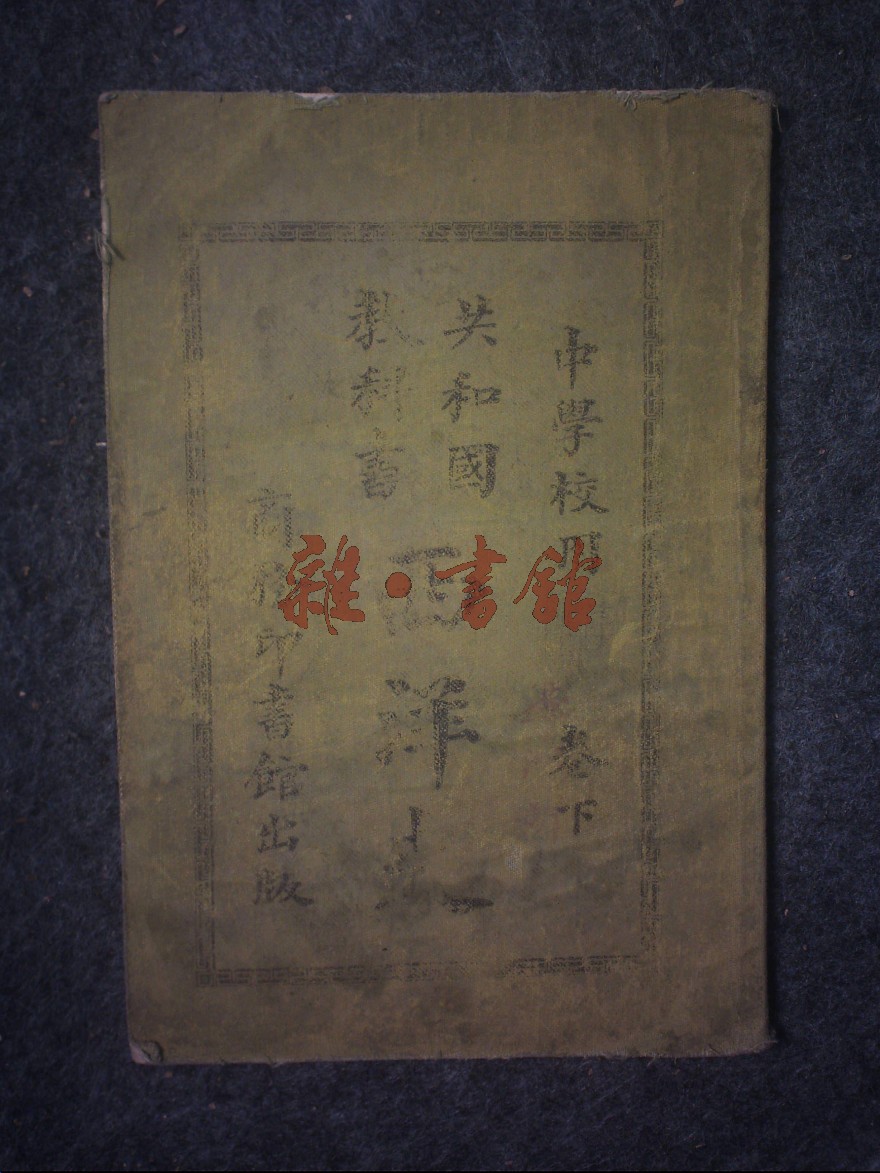 中學校用 卷下
共和國
教科書
西洋史
商務印書館出版
雜·書館